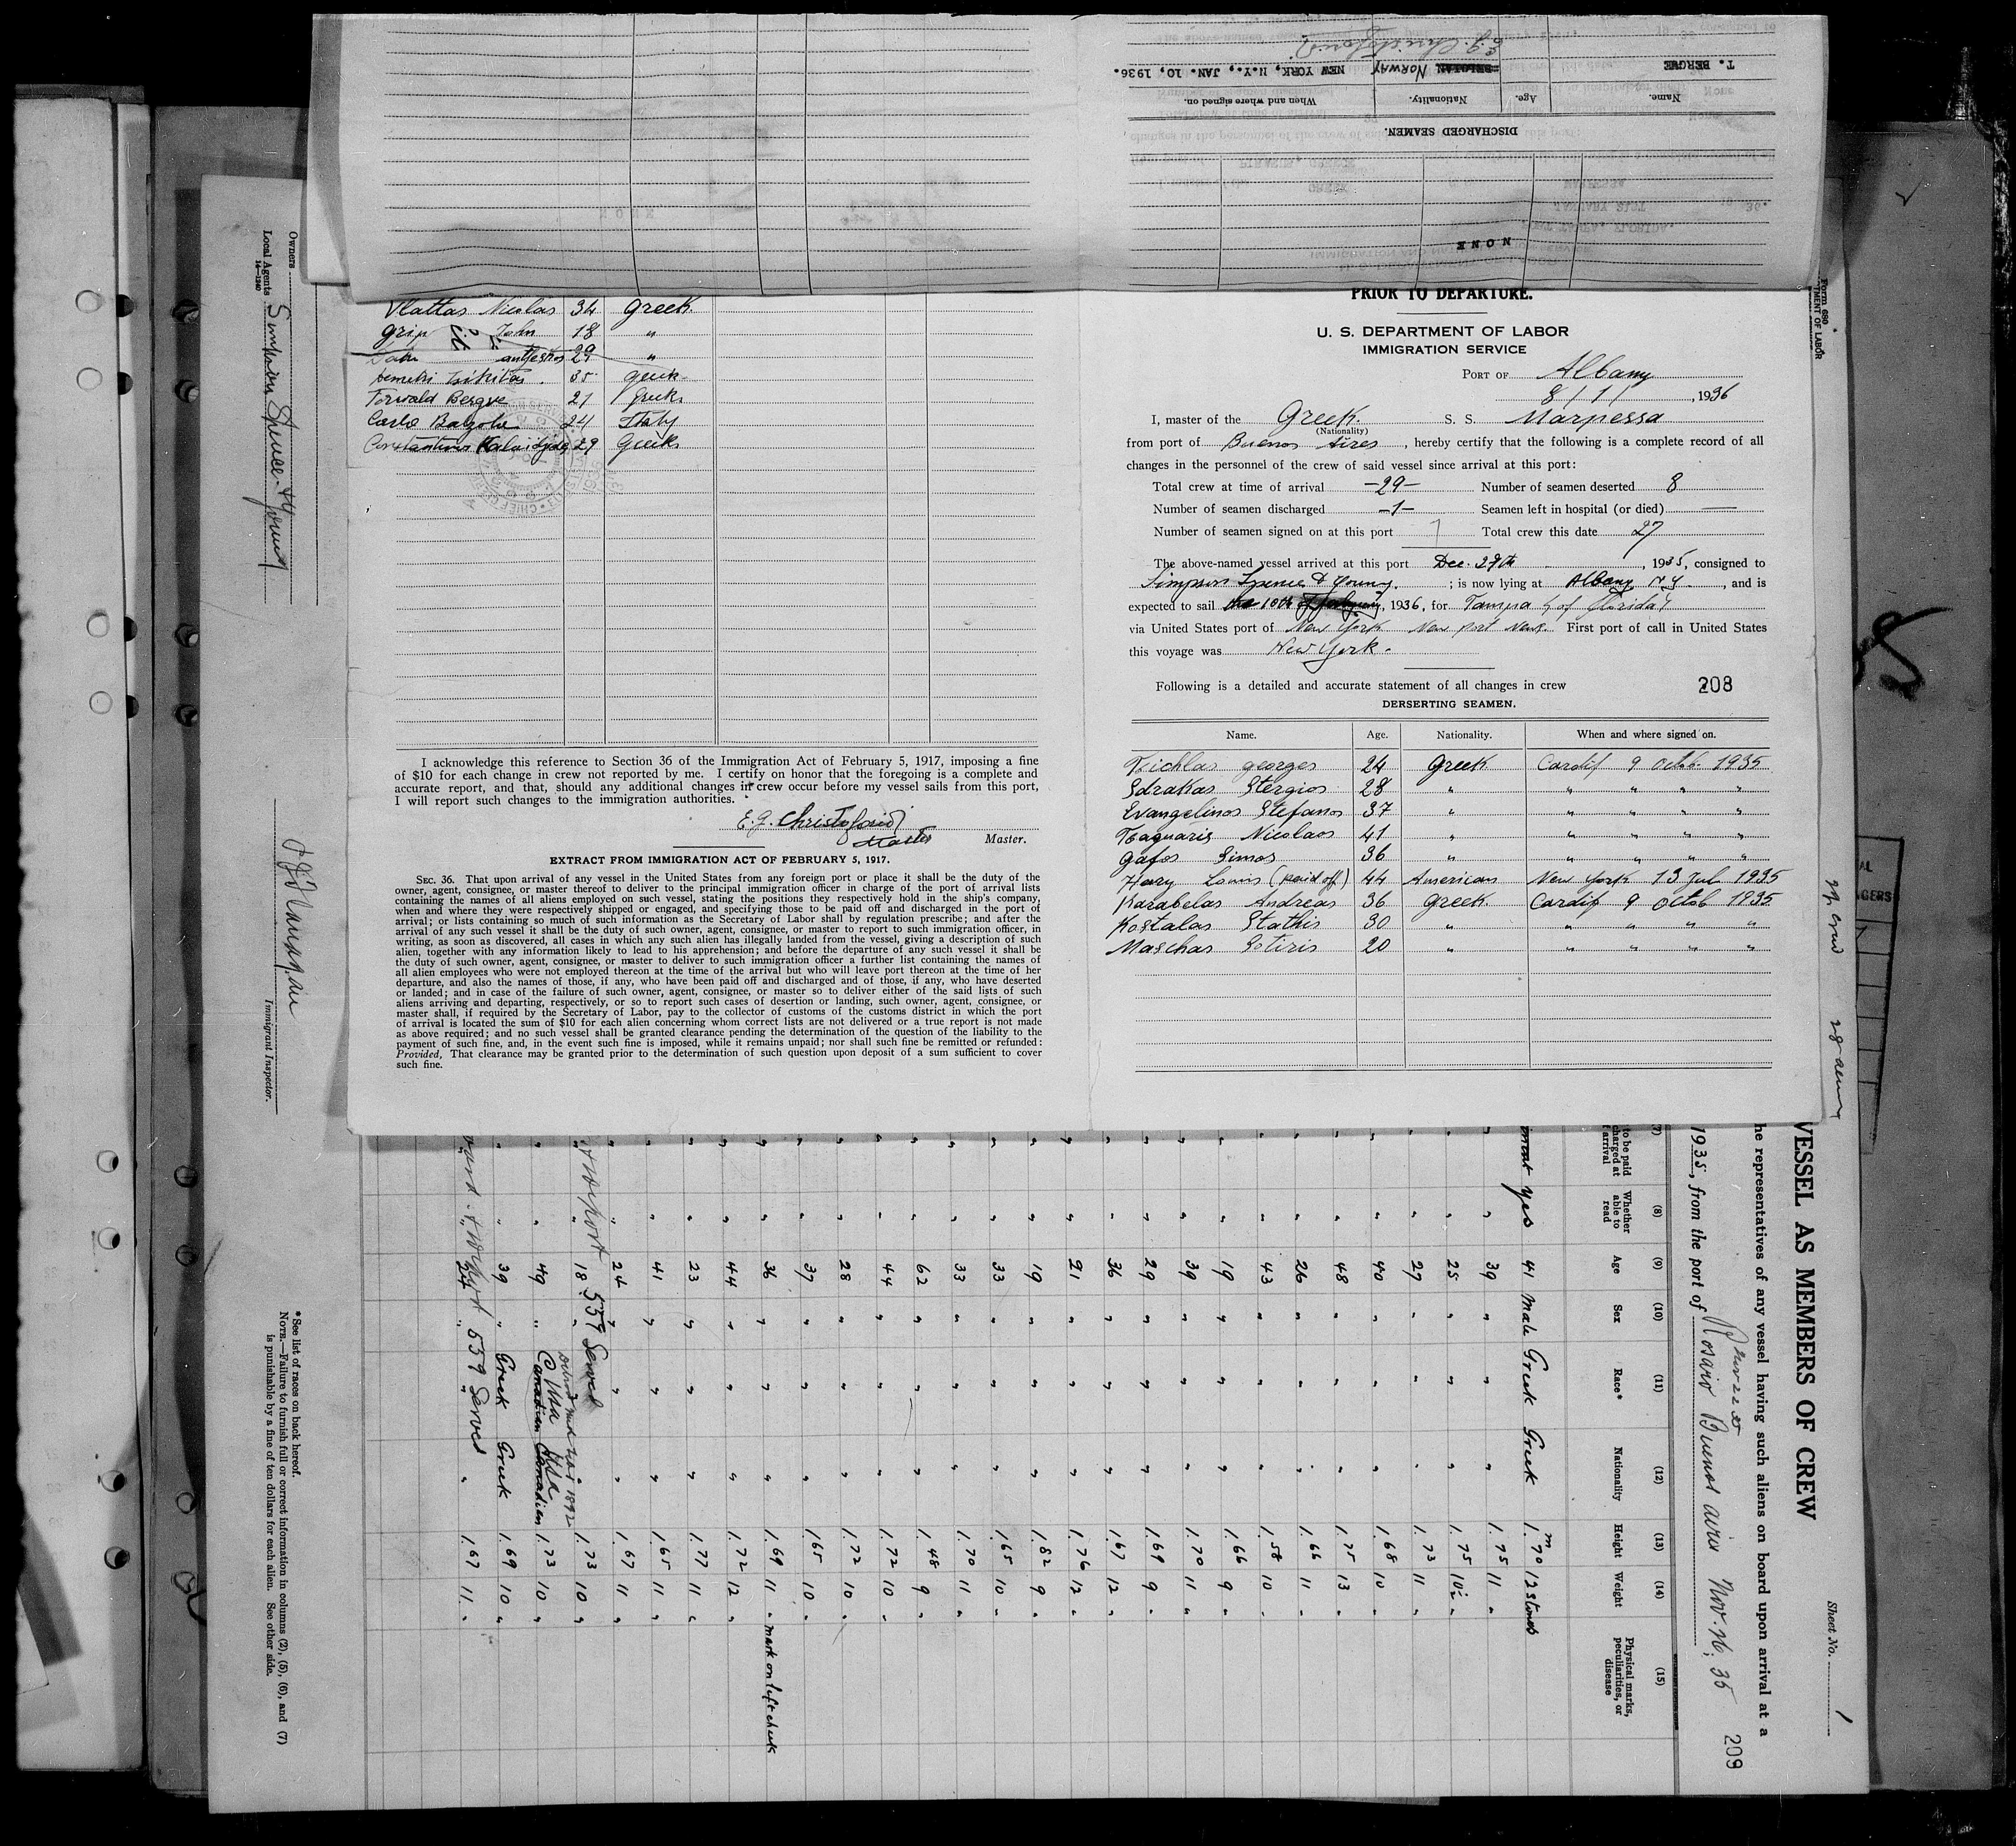 DISCHARGED SEAMEN.
Name. Age. Nationality. When and where signed on.
T. BERGWE BELGIAN NORWAY NEW YORK, N.Y., JAN. 10, 1936.
NONE
Vlattas Nicolas 34 Greek
Grip John 18 "
29 "
35 Greek
Torwald Bergve 21 Greek
Carlo 24 Italy
29 Greek
I acknowledge this reference to Section 36 of the Immigration Act of February 5, 1917, imposing a fine
of $10 for each change in crew not reported by me. I certify on honor that the foregoing is a complete and
accurate report, and that, should any additional changes in crew occur before my vessel sails from this port,
I will report such changes to the immigration authorities.
E. G. Christoforid
Master Master.
EXTRACT FROM IMMIGRATION ACT OF FEBRUARY 5, 1917.
SEC. 36. That upon arrival of any vessel in the United States from any foreign port or place it shall be the duty of the
owner, agent, consignee, or master thereof to deliver to the principal immigration officer in charge of the port of arrival lists
containing the names of all aliens employed on such vessel, stating the positions they respectively hold in the ship's company,
when and where they were respectively shipped or engaged, and specifying those to be paid off and discharged in the port of
arrival; or lists containing so much of such information as the Secretary of Labor shall by regulation prescribe; and after the
arrival of any such vessel it shall be the duty of such owner, agent, consignee, or master to report to such immigration officer, in
writing, as soon as discovered, all cases in which any such alien has illegally landed from the vessel, giving a description of such
alien, together with any information likely to lead to his apprehension; and before the departure of any such vessel it shall be
the duty of such owner, agent, consignee, or master to deliver to such immigration officer a further list containing the names of
all alien employees who were not employed thereon at the time of the arrival but who will leave port thereon at the time of her
departure, and also the names of those, if any, who have been paid off and discharged and of those, if any, who have deserted
or landed; and in case of the failure of such owner, agent, consignee, or master so to deliver either of the said lists of such
aliens arriving and departing, respectively, or so to report such cases of desertion or landing, such owner, agent, consignee, or
master shall, if required by the Secretary of Labor, pay to the collector of customs of the customs district in which the port
of arrival is located the sum of $10 for each alien concerning whom correct lists are not delivered or a true report is not made
as above required; and no such vessel shall be granted clearance pending the determination of the question of the liability to the
payment of such fine, and, in the event such fine is imposed, while it remains unpaid; nor shall such fine be remitted or refunded:
Provided, That clearance may be granted prior to the determination of such question upon deposit of a sum sufficient to cover
such fine.
PRIOR TO DEPARTURE.
U. S. DEPARTMENT OF LABOR
IMMIGRATION SERVICE
PORT OF Albany
8/1/, 1936
I, master of the Greek S. S. Marpessa
(Nationality)
from port of Buenos Aires, hereby certify that the following is a complete record of all
changes in the personnel of the crew of said vessel since arrival at this port:
Total crew at time of arrival -29- Number of seamen deserted 8
Number of seamen discharged -1- Seamen left in hospital (or died) —
Number of seamen signed on at this port 7 Total crew this date 27
The above-named vessel arrived at this port Dec. 29th, 1935, consigned to
Simpson Spence & Young; is now lying at Albany NY, and is
expected to sail the 10th, 1936, for Tampa of Florida
via United States port of New York New port News First port of call in United States
this voyage was New York.
Following is a detailed and accurate statement of all changes in crew 208
DERSERTING SEAMEN.
Name. Age. Nationality. When and where signed on.
Tsichlas georges 24 Greek Cardif 9 octb. 1935
Sdrakas Stergios 28 " " " " "
Evangelinos Stefanos 37 " " " " "
Tsaguaris Nicolaos 41 " " " " "
Gafos Simos 36 " " " " "
Hary Louis (paid off) 44 American New York 13 Jul 1935
Karabelas Andreas 36 Greek Cardif 9 octob 1935
Kostalas Stathis 30 " " " " "
Maschas Sotiris 20 " " " " "
VESSEL AS MEMBERS OF CREW
Sheet No. 1
he representatives of any vessel having such aliens on board upon arrival at a
1935, from the port of Rosario Buenos aires Nov. 16, 35
209
(7) (8) (9) (10) (11) (12) (13) (14) (15)
to be paid
charged at
arrival
Whether
able to
read
Age Sex Race* Nationality Height Weight
Physical marks,
peculiarities, or
disease
yes 41 Male Greek Greek 1.70 12 stones
" 39 " " " 1.75 11 "
" 25 " " " 1.75 10½ "
" 27 " " " 1.73 11 "
" 40 " " " 1.68 10 "
" 48 " " " 1.75 13 "
" 26 " " " 1.66 11 "
" 43 " " " 1.58 10 "
" 19 " " " 1.66 9 "
" 39 " " " 1.70 11 "
" 29 " " " 1.69 9 "
" 36 " " " 1.67 12 "
" 21 " " " 1.76 12 "
" 19 " " " 1.82 9 "
" 33 " " " 1.65 10 "
" 33 " " " 1.70 11 "
" 62 " " " 1.48 9 "
" 44 " " " 1.72 10 "
" 28 " " " 1.72 10 "
" 37 " " " 1.65 10 "
" 36 " " " 1.69 11 " mark on left cheek
" 44 " " " 1.72 12 "
" 23 " " " 1.77 11 "
" 41 " " " 1.65 11 "
" 24 " " " 1.67 11 "
" 18 " 539 Served 1.73 10 "
" 49 " Canadian Canadian USA USA 1.73 10 "
" 39 " Greek Greek 1.69 10 "
" 24 " 539 Served " 1.67 11 "
* See list of races on back hereof.
NOTE.—Failure to furnish full or correct information in columns (2), (5), (6), and (7)
is punishable by a fine of ten dollars for each alien. See other side.
Owners
Local Agents Simpson Spence & Young
14—1240
Immigrant Inspector.
Form 680
TMENT OF LABOR